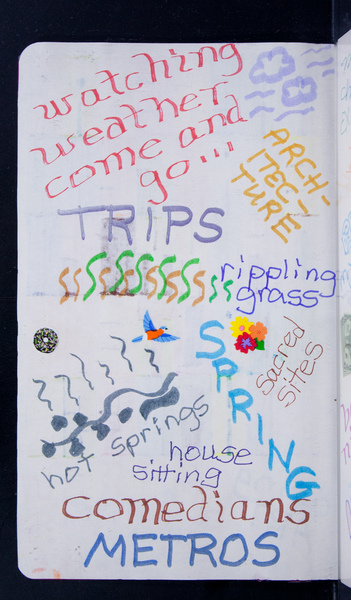 watching
weather
come and
go...
ARCH-
ITEC-
TURE
TRIPS
rippling
grass
SPRING
sacred
sites
hot springs
house
sitting
comedians
METROS